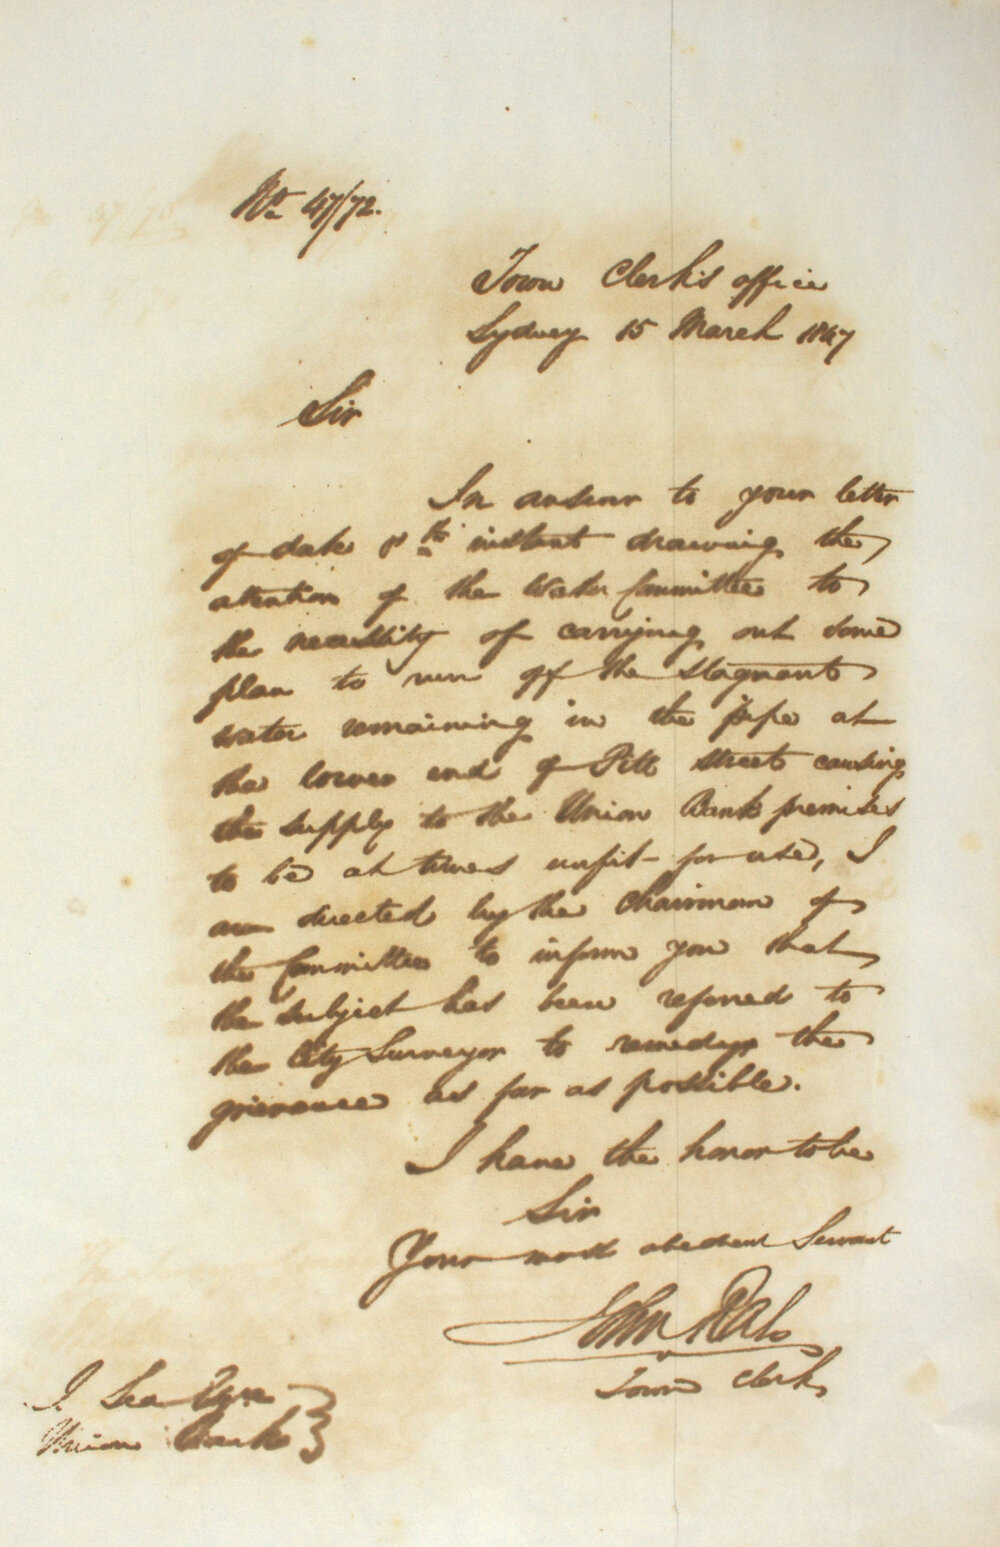 No 47/72.
Town Clerk's office
Sydney 15 March 1847
Sir
In answer to your letter
of date 8th instant drawing the
attention of the Water Committee to
the necessity of carrying out some
plan to run off the stagnant
water remaining in the pipe at
the lower end of Pitt Street causing
the supply to the Union Bank premises
to be at times unfit for use, I
am directed by the Chairman of
the Committee to inform you that
the subject has been referred to
the City Surveyor to remedy the
grievance as far as possible.
I have the honor to be
Sir
Your most obedient Servant
John
Town Clerk
Lea Esqre
Union Bank